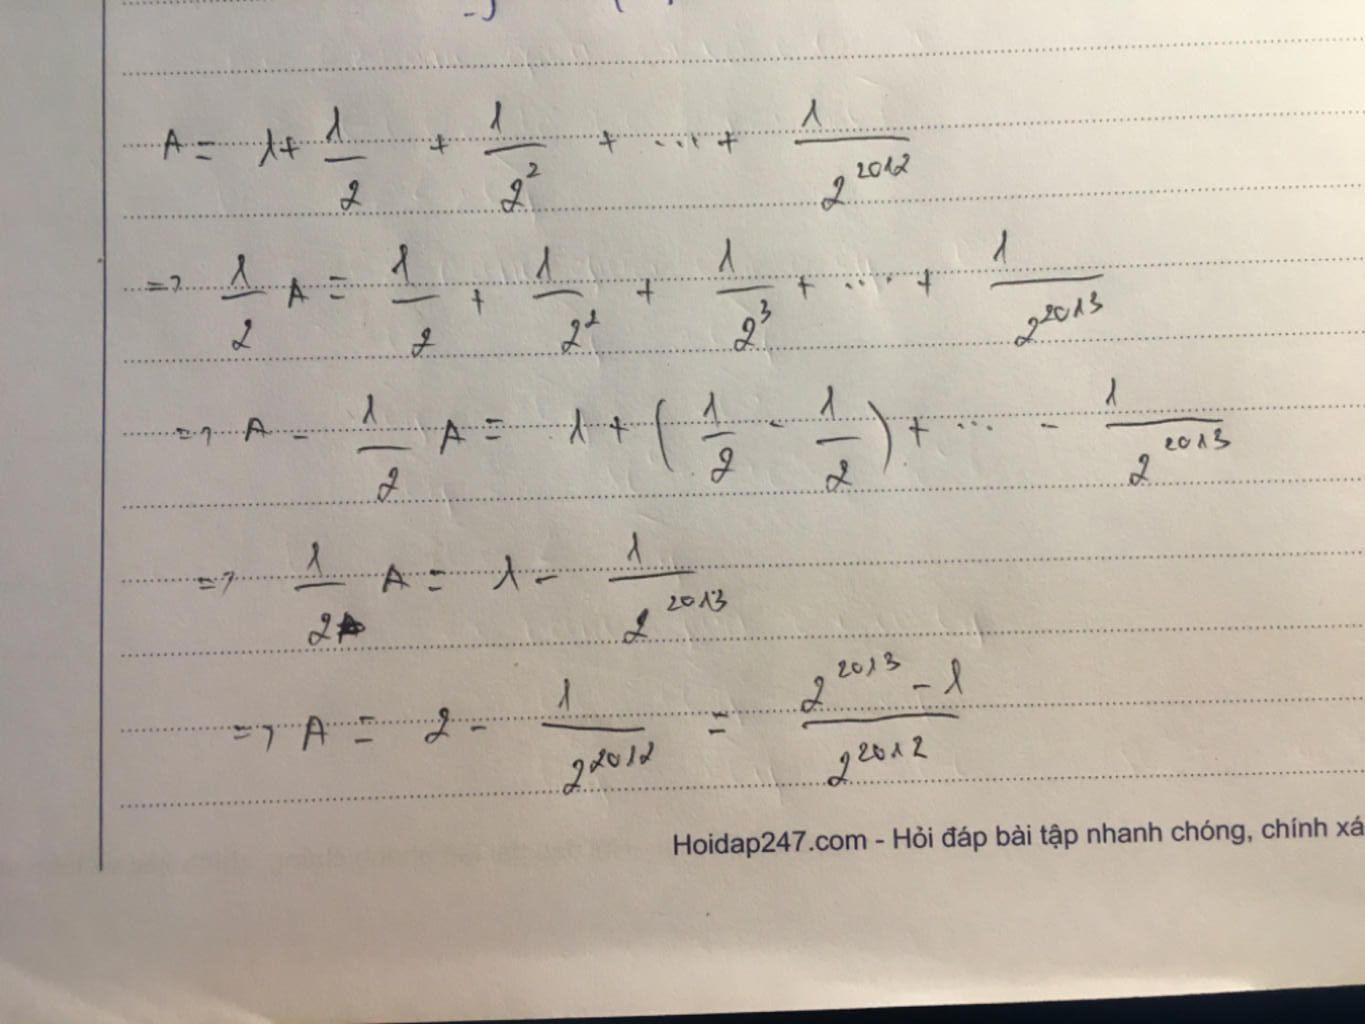 A = 1 + 1/2 + 1/2^2 + ... + 1/2^2012
=> 1/2 A = 1/2 + 1/2^2 + 1/2^3 + ... + 1/2^2013
=> A - 1/2 A = 1 + (1/2 - 1/2) + ... - 1/2^2013
=> 1/2 A = 1 - 1/2^2013
=> A = 2 - 1/2^2012 = (2^2013 - 1)/2^2012
Hoidap247.com - Hỏi đáp bài tập nhanh chóng, chính xá